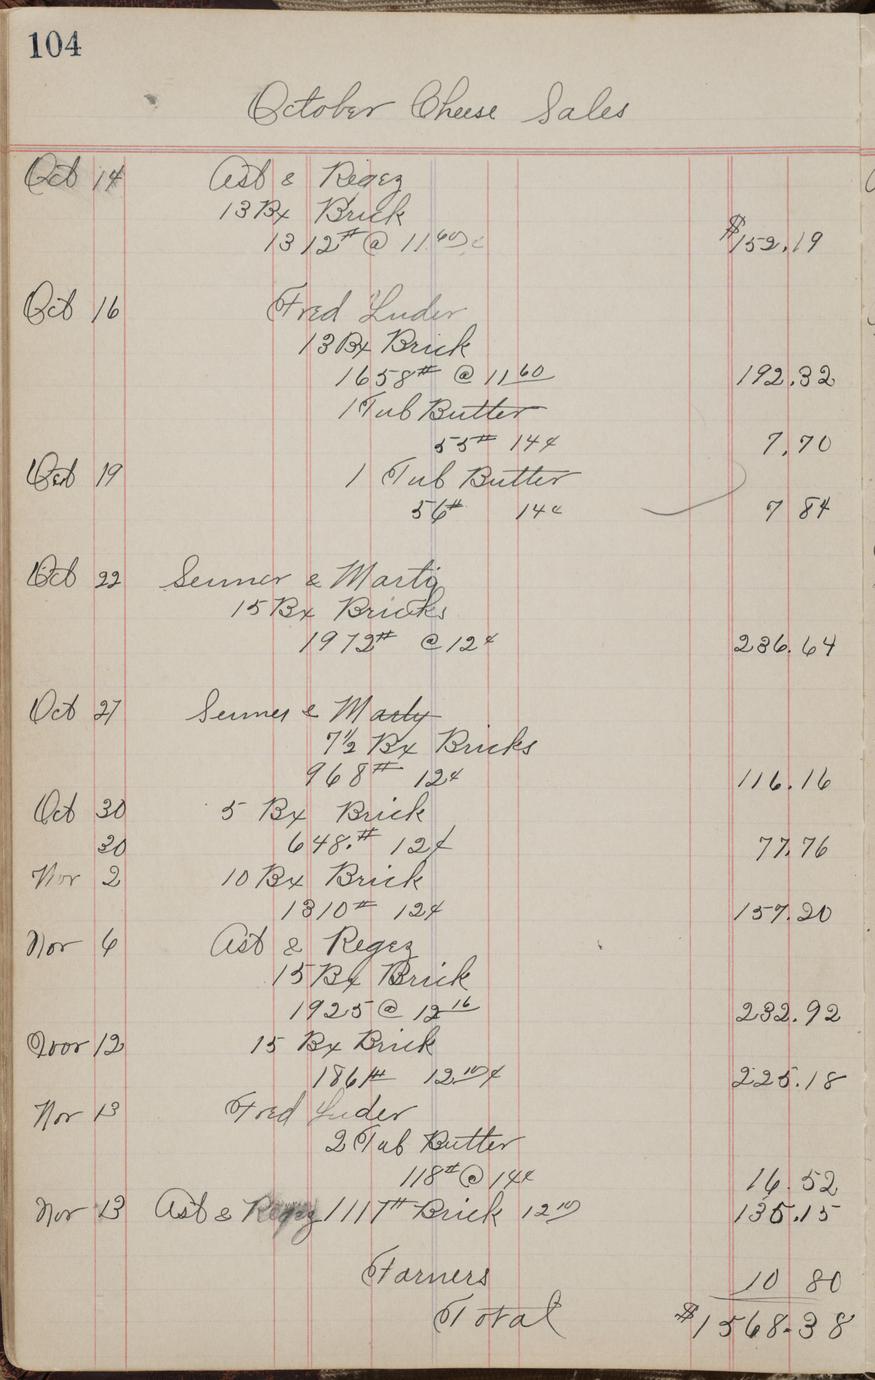 104
October Cheese Sales
Oct 14 Ast & Regez
13 Bx Brick
1312# @ 11.60¢ $152.19
Oct 16 Fred Luder
13 Bx Brick
1658# @ 11 60 192.32
1 Tub Butter
55# 14¢ 7.70
Oct 19 1 Tub Butter
56# 14¢ 7 84
Oct 22 Senner & Marty
15 Bx Bricks
1972# @ 12¢ 236.64
Oct 27 Senner & Marty
7 1/2 Bx Bricks
968# 12¢ 116.16
Oct 30 5 Bx Brick
30 648.# 12¢ 77.76
Nov 2 10 Bx Brick
1310# 12¢ 157.20
Nov 6 Ast & Regez
15 Bx Brick
1925 @ 12 16 232.92
Nov 12 15 Bx Brick
1861# 12 10¢ 225.18
Nov 13 Fred Luder
2 Tub Butter
118# @ 14¢ 16.52
Nov 13 Ast & Regez 1117# Brick 12 10 135.15
Farners 10 80
Total $1568.38